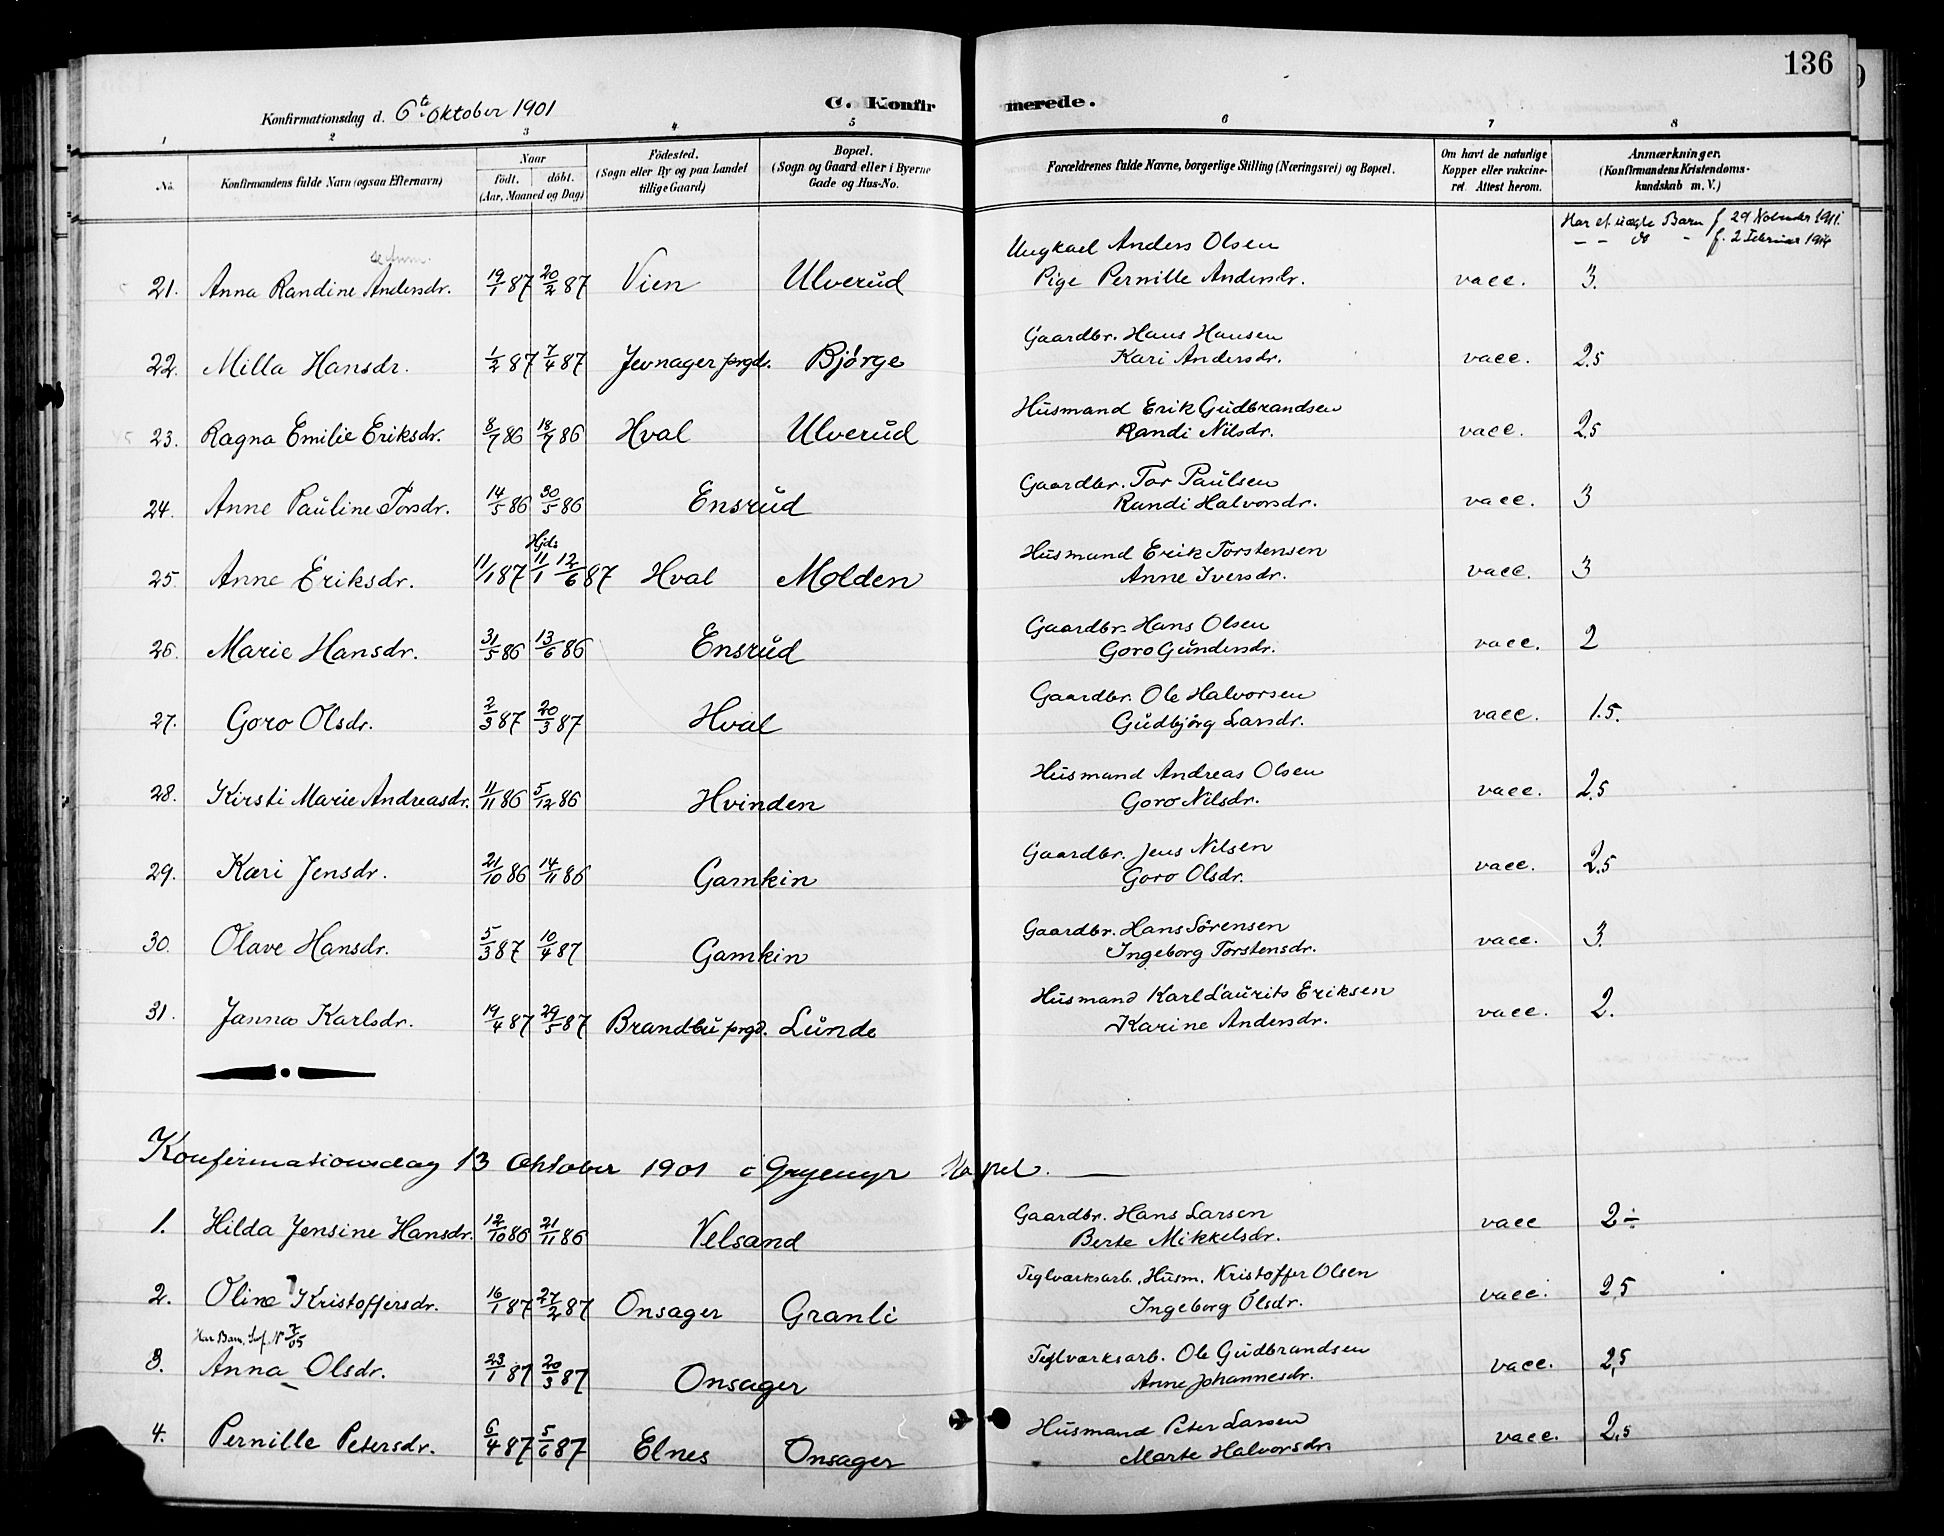 136
Konfirmationsdag d. 6te Oktober 1901
C. Konfirmerede.
1 2 3 4 5 6 7 8
No. Konfirmandens fulde Navn (ogsaa Efternavn) Naar födt. döbt. (Aar, Maaned og Dag) Födested. (Sogn eller By og paa Landet tillige Gaard) Bopæl. (Sogn og Gaard eller i Byerne Gade og Hus-No. Forældrenes fulde Navne, borgerlige Stilling (Næringsvei) og Bopæl. Om havt de naturlige Kopper eller vakcineret. Attest herom. Anmærkninger. (Konfirmandens Kristendomskundskab m. V.)
Har et uægte Barn f. 29 November 1911.
– – do – f. 2 Februar
Ungkarl Anders Olsen
21. Anna Randine Andersdr. 19/1 87 20/2 87 Vien Ulverud Pige Pernille Andersdr. vacc. 3.
Gaardbr. Hans Hansen
22. Milla Hansdr. 1/2 87 7/4 87 Jevnager prgd. Bjørge Kari Andersdr. vacc. 2.5
Husmand Erik Gudbrandsen
23. Ragna Emilie Eriksdr. 8/7 86 18/7 86 Hval Ulverud Randi Nilsdr. vacc. 2.5
Gaardbr. Tor Paulsen
24. Anne Pauline Torsdr. 14/5 86 30/5 86 Ensrud Randi Halvorsdr. vacc. 3
Hjds Husmand Erik Torstensen
25. Anne Eriksdr. 11/1 87 11/1 12/6 87 Hval Molden Anne Iversdr. vacc. 3
Gaardbr. Hans Olsen
26. Marie Hansdr. 31/5 86 13/6 86 Ensrud Goro Gundersdr. vacc. 2
Gaardbr. Ole Halvorsen
27. Goro Olsdr. 2/3 87 20/3 87 Hval Gudbjörg Larsdr. vacc. 1.5.
Husmand Andreas Olsen
28. Kirsti Marie Andreasdr. 11/11 86 5/12 86 Hvinden Goro Nilsdr. vacc. 2.5
Gaardbr. Jens Nilsen
29. Kari Jensdr. 21/10 86 14/11 86 Gamkin Goro Olsdr. vacc. 2.5
Gaardbr. Hans Sörensen
30. Olave Hansdr. 5/3 87 10/4 87 Gamkin Ingeborg Torstensdr. vacc. 3.
Husmand Karl Laurits Eriksen
31. Janna Karlsdr. 19/4 87 29/5 87 Brandbu prgd. Lunde Karine Andersdr. vacc. 2.
Konfirmationsdag 13 Oktober 1901 i Kapel.
Gaardbr. Hans Larsen
1. Hilda Jensine Hansdr. 12/10 86 21/11 86 Velsand Berte Mikkelsdr. vacc 2÷
Teglværksarb. Husm. Kristoffer Olsen
2. Oline Kristoffersdr. 16/1 87 27/2 87 Onsager Granli Ingeborg Olsdr. vacc. 2,5
Teglværksarb. Ole Gudbrandsen
3. Anna Olsdr. 23/1 87 20/3 87 Onsager Anne Johannesdr. vacc. 2,5
Husmand Peter Larsen
4. Pernille Petersdr. 6/4 87 5/6 87 Elnes Onsager Marte Halvorsdr. vacc. 2,5